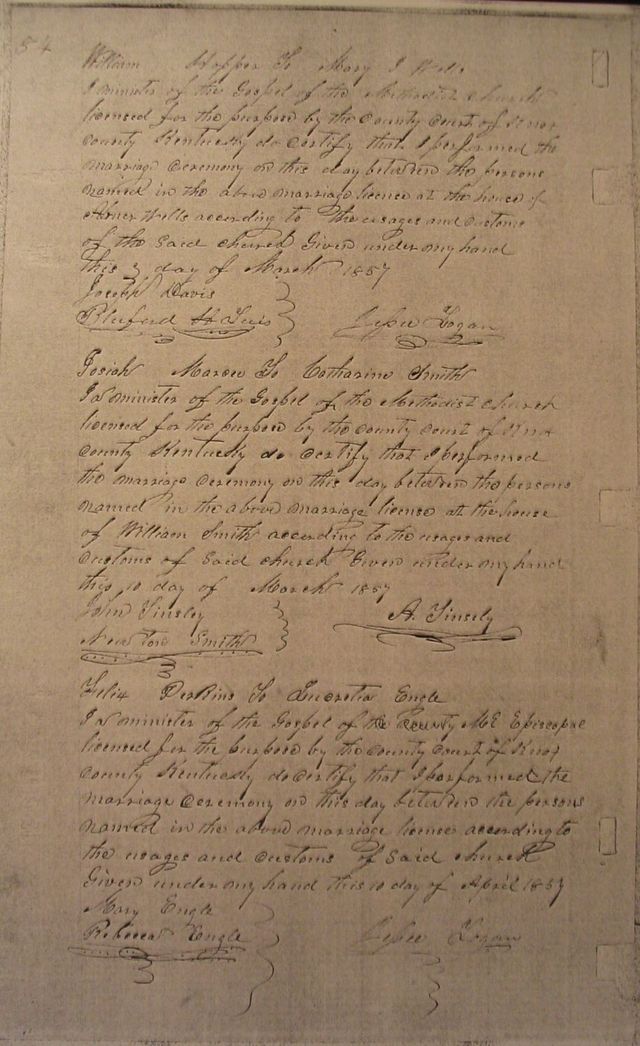 54
William Hopper To Mary J Wells
I minister of the Gospel of the Methodist church
licensed for the purpose by the County Court of Knox
County Kentucky do certify that I performed the
marriage ceremony on this day between the persons
named in the above marriage licence at the house of
Abner Wells according to the usages and customs
of the said church Given under my hand
this 3 day of March 1857
Joseph Davis
Pluford H Luis
Jesse Logan
Josiah To Catharine Smith
I a minister of the Gospel of the Methodist church
licensed for the purpose by the county court of Knox
County Kentucky do certify that I performed
the marriage ceremony on this day between the persons
named in the above marriage license at the house
of William Smith according to the usages and
customs of said church Given under my hand
this 10 day of March 1857
John Tinsley
Newton Smith
A. Tinsely
Felix Perkins To Lucretia Engle
I a minister of the Gospel of the ME Episcopal
licensed for the purpose by the county court of Knox
County Kentucky do certify that I performed the
marriage ceremony on this day between the persons
named in the above marriage license according to
the usages and customs of said church
Given under my hand this 10 day of April 1857
Mary Engle
Rebecca Engle
Jesse Logan